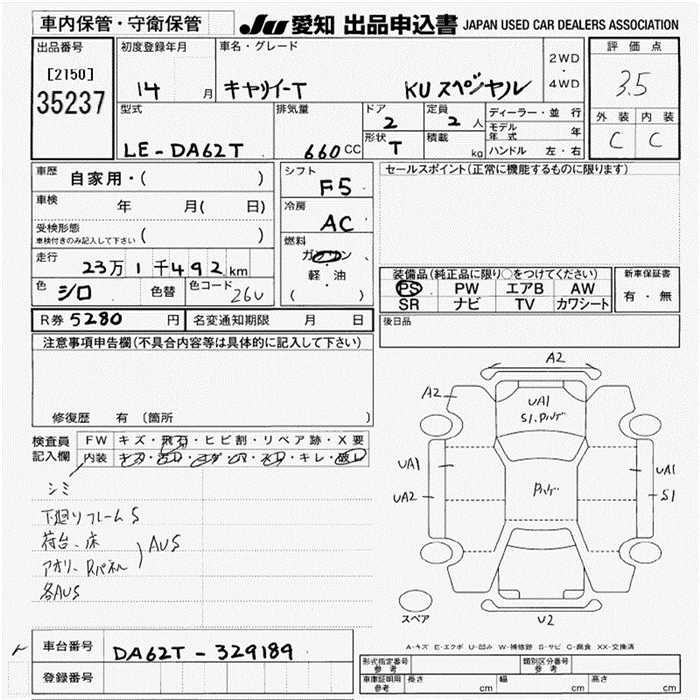 車内保管・守衛保管
JU 愛知 出品申込書 JAPAN USED CAR DEALERS ASSOCIATION
出品番号
[2150]
35237
初度登録年月
14 月
車名・グレード
キャリイーT KUスペシャル
2WD
・
4WD
評価点
3.5
外装 内装
C C
型式
LE-DA62T
排気量
660 CC
ドア
2
形状
T
定員
2 人
積載
kg
ディーラー・並行
モデル年式 年
ハンドル 左・右
車歴
自家用・( )
車検
年 月( 日)
受検形態
車検付きのみ記入して下さい ( )
走行
23万1千492km
色
シロ
色替
色コード
26U
シフト
F5
冷房
AC
燃料
ガソリン
・
軽・油
( )
セールスポイント(正常に機能するものに限ります)
装備品(純正品に限り○をつけてください)
PS PW エアB AW
SR ナビ TV カワシート
新車保証書
有・無
後日品
R券 5280 円
名変通知期限 月 日
注意事項申告欄(不具合内容等は具体的に記入して下さい)
修復歴 有 (箇所 )
検査員
記入欄
FW キズ・飛石・ヒビ割・リペア跡・X要
内装 キレ・破レ
シミ
下廻りフレームS
荷台、床
アオリ、Rパネル
AUS
各AUS
A2
A2
UA1
UA1
UA2
UA1
S1
U2
スペア
A-キズ E-エクボ U-凹み W-補修跡 S-サビ C-腐食 XX-交換済
車台番号
DA62T-329189
登録番号
形式指定番号
参考
類別区分番号
参考
車庫証明用
参考
長さ cm 幅 cm 高さ cm